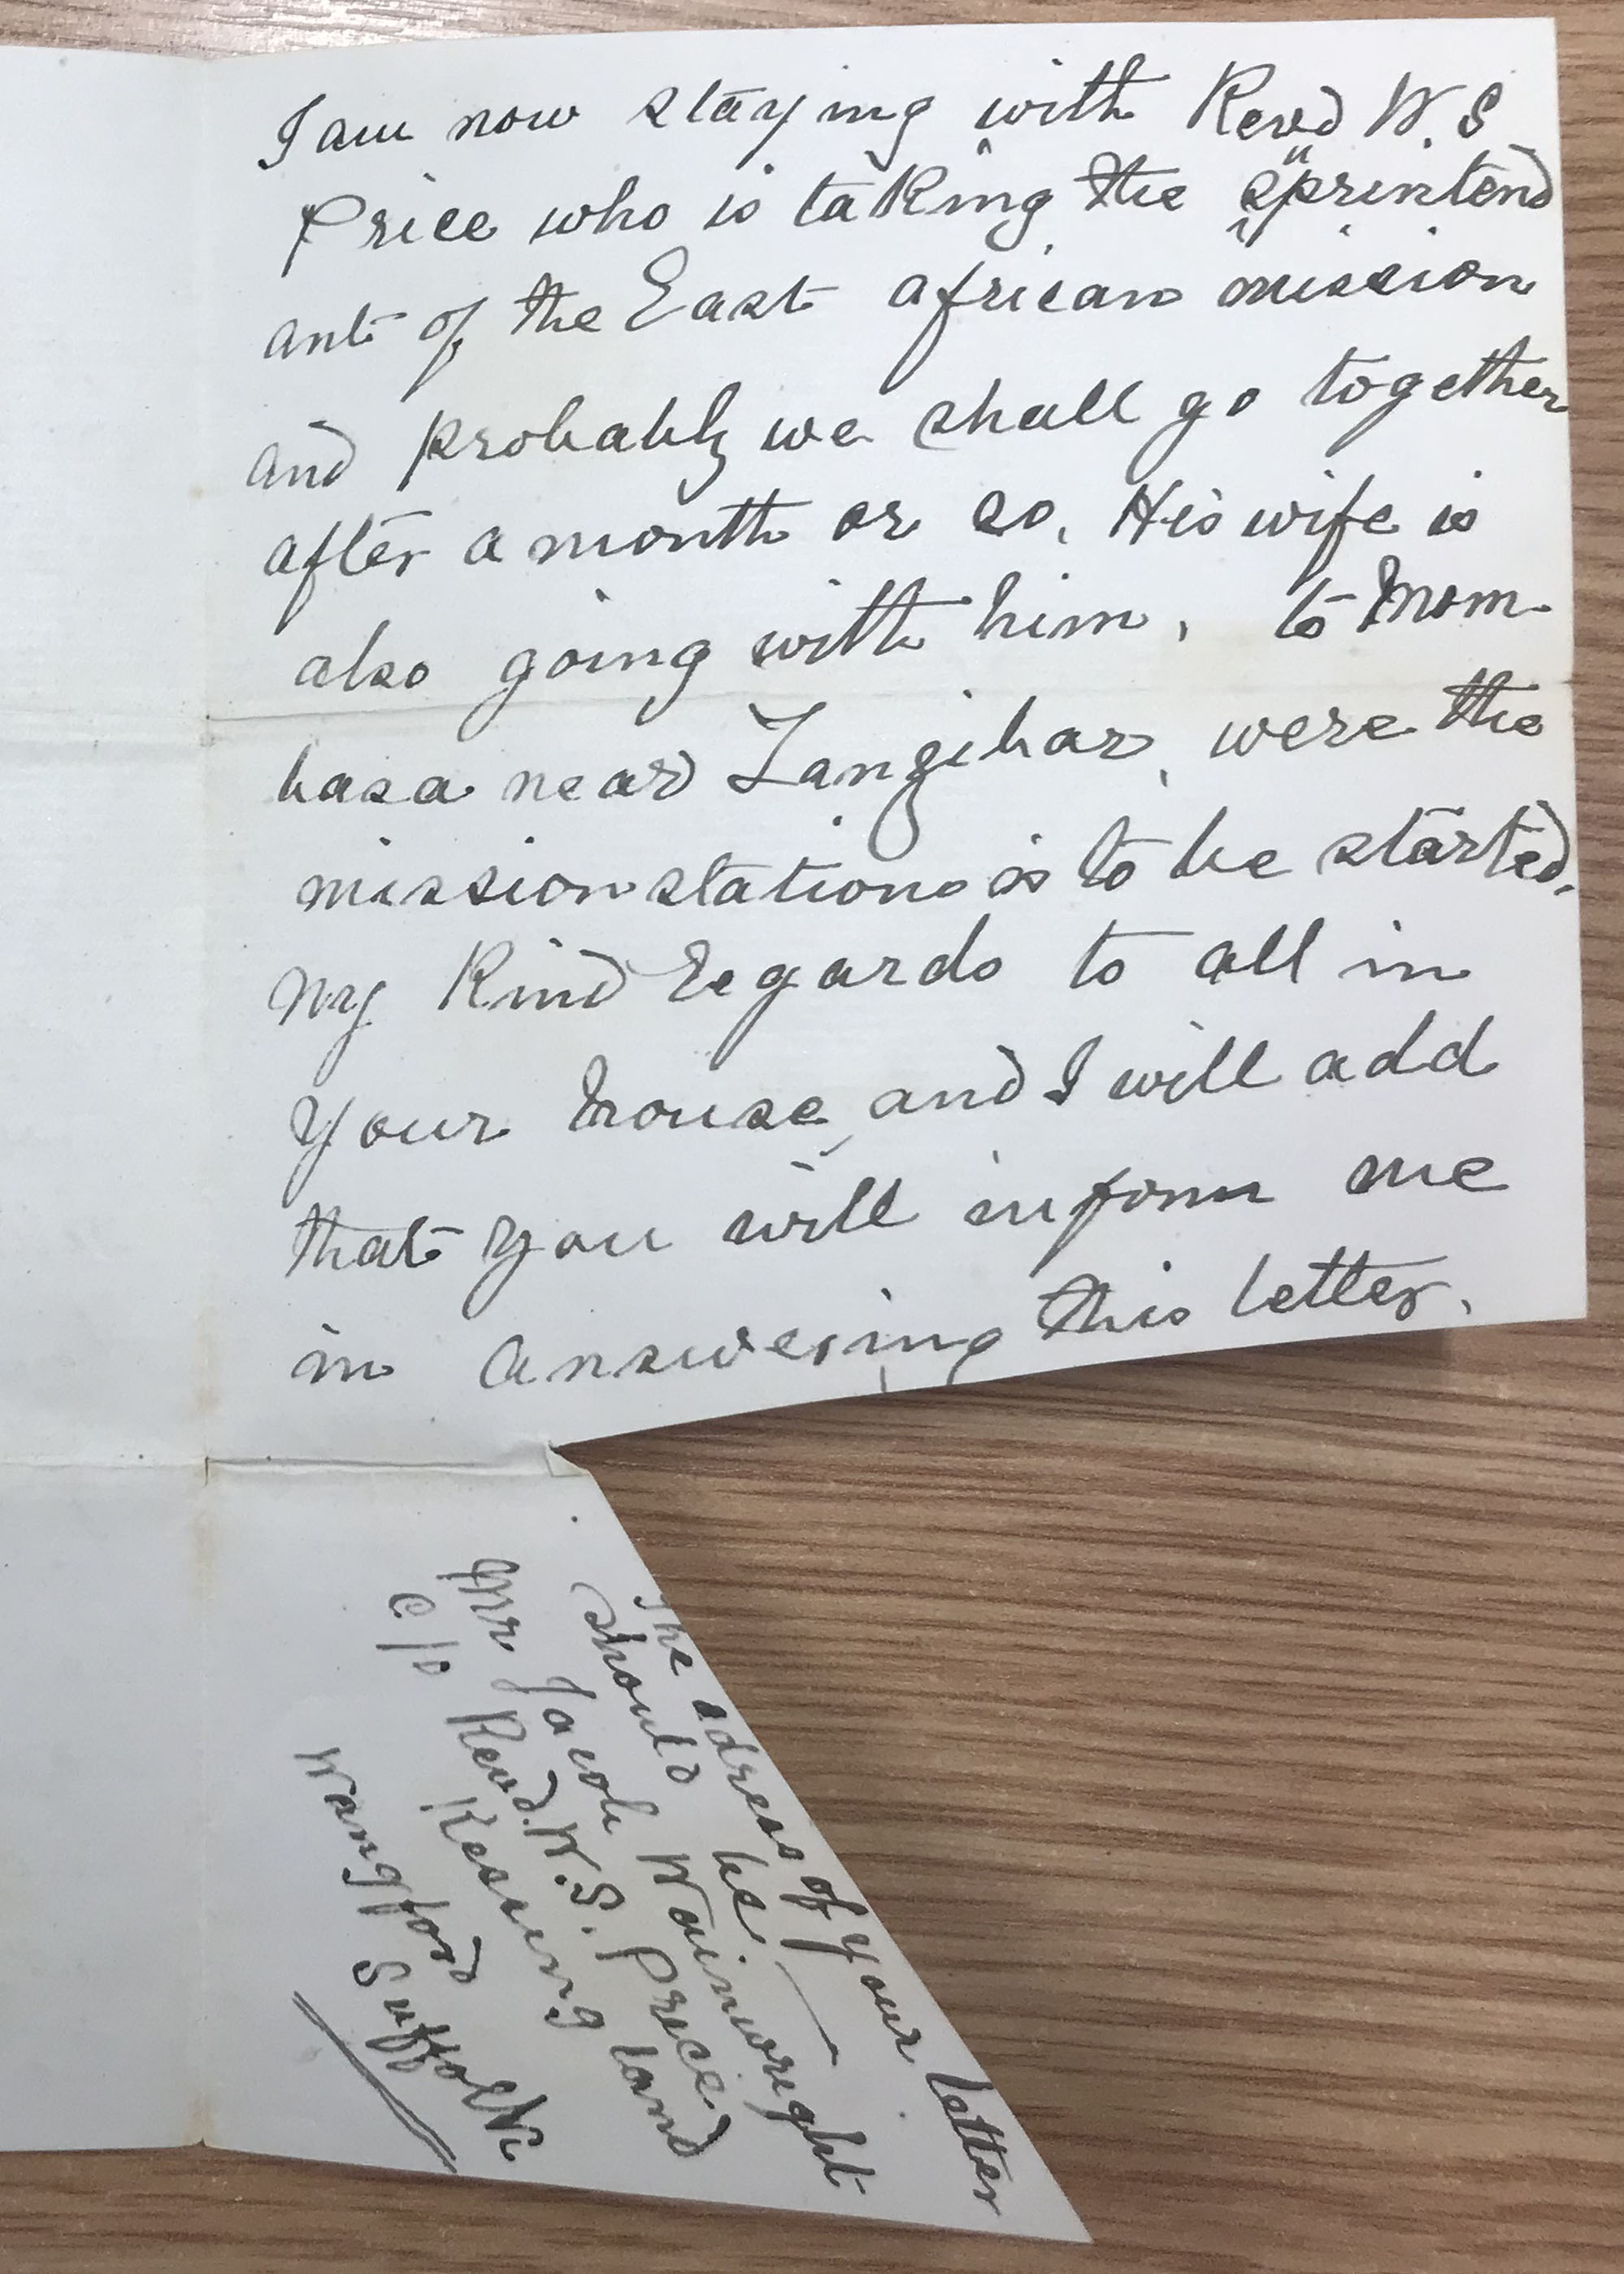 I am now staying with Revd W. S
Price who is taking the suprintend
ant of the East african mission
and probably we shall go together
after a month or so. His wife is
also going with him, to Mom-
basa near Zanzibar, were the
mission stations is to be started.
My kind regards to all in
your house, and I will add
that you will inform me
in answering this letter.
The adress of your letter
should be
Mr Jacob Wainwright
c/o Revd. W. S. Price
Kessing land
Wangford
Suffolk